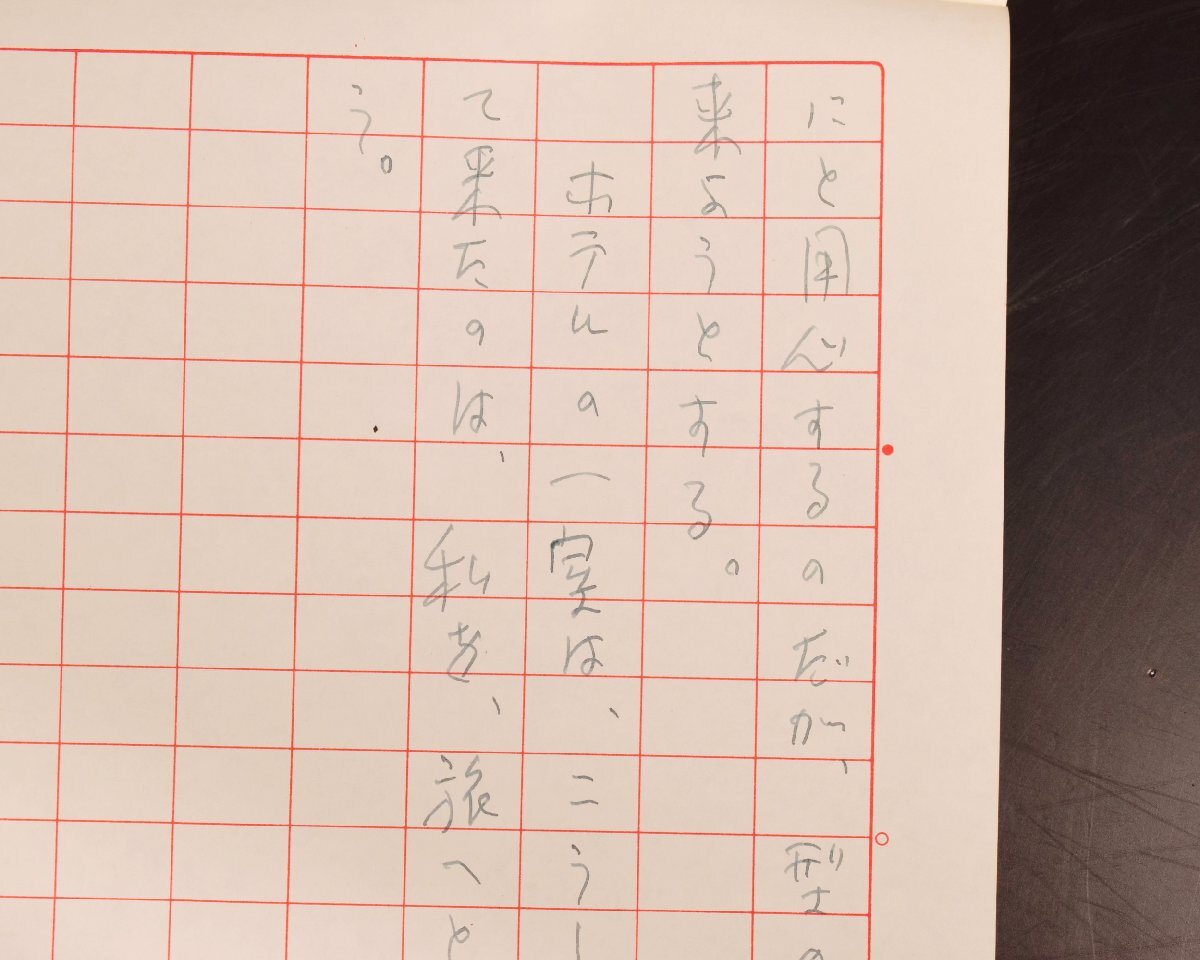 にと用心するのだが、型の
来ようとする。
ホテルの一室は、こうし
て来たのは、私を、旅へと
う。